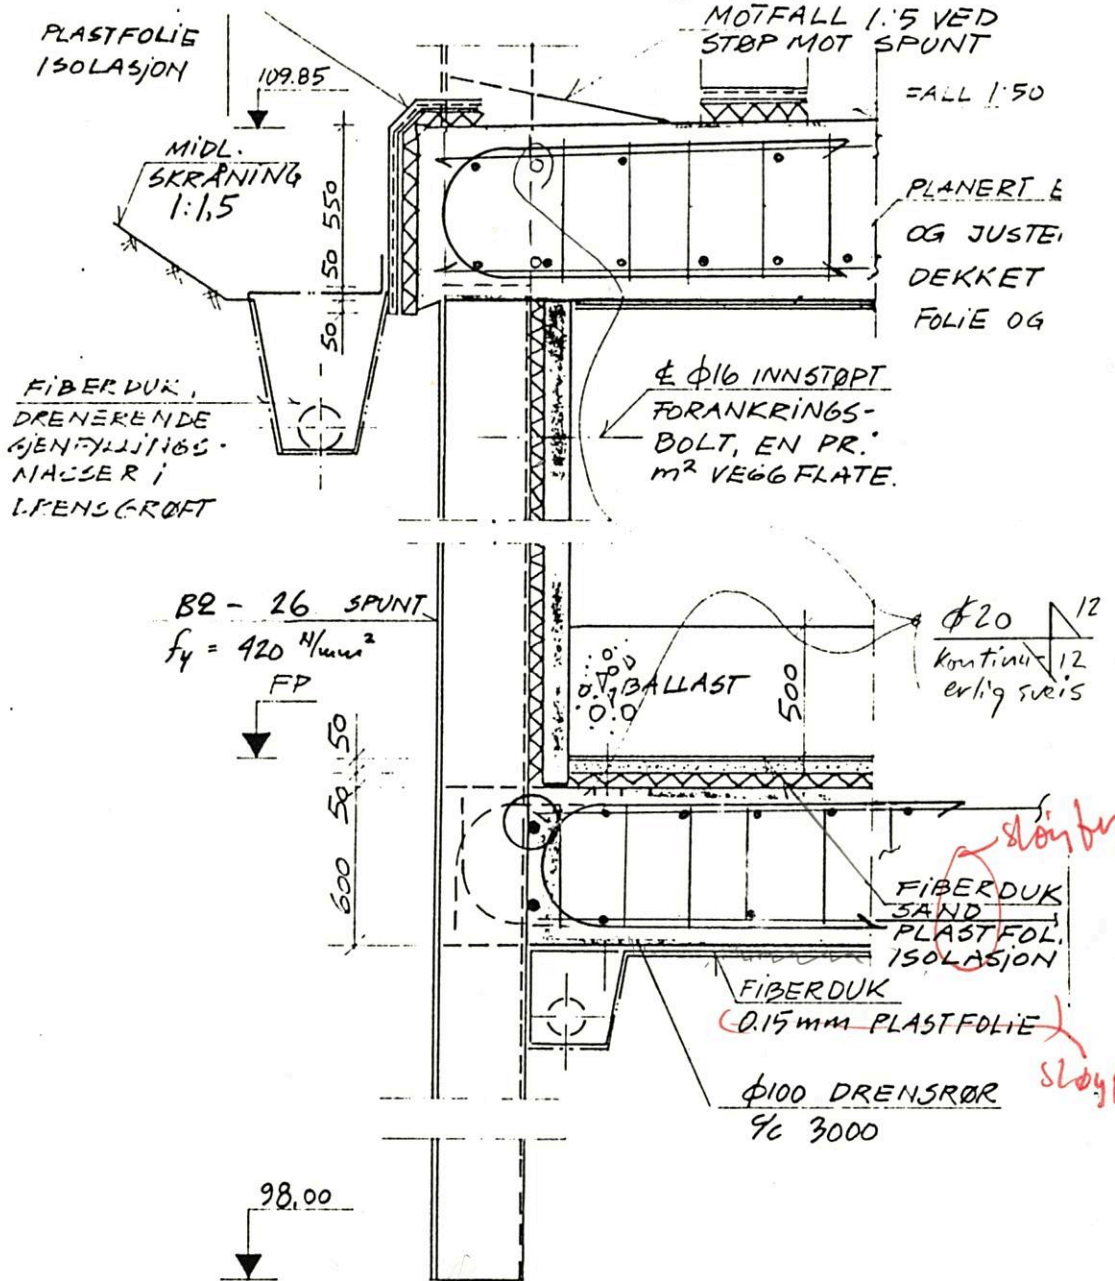 PLASTFOLIE
ISOLASJON
109.85
MOTFALL 1:5 VED
STØP MOT SPUNT
=ALL 1:50
MIDL.
SKRÅNING
1:1,5
550
50
50
PLANERT
OG JUSTE
DEKKET
FOLIE OG
FIBERDUK,
DRENERENDE
GJENFYLLINGS-
MASSER I
DRENSGRØFT
¢ ϕ16 INNSTØPT
FORANKRINGS-
BOLT, EN PR.
m² VEGGFLATE.
BZ - 26 SPUNT
fy = 420 N/mm²
FP
50
50
600
BALLAST
500
ϕ20 12
Kontinu- 12
erlig sveis
FIBERDUK
SAND
PLASTFOL.
ISOLASJON
FIBERDUK
(0.15mm PLASTFOLIE)
ϕ100 DRENSRØR
c/c 3000
98.00